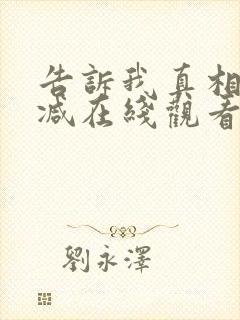 告訴我真相
減在綫觀看
劉永澤